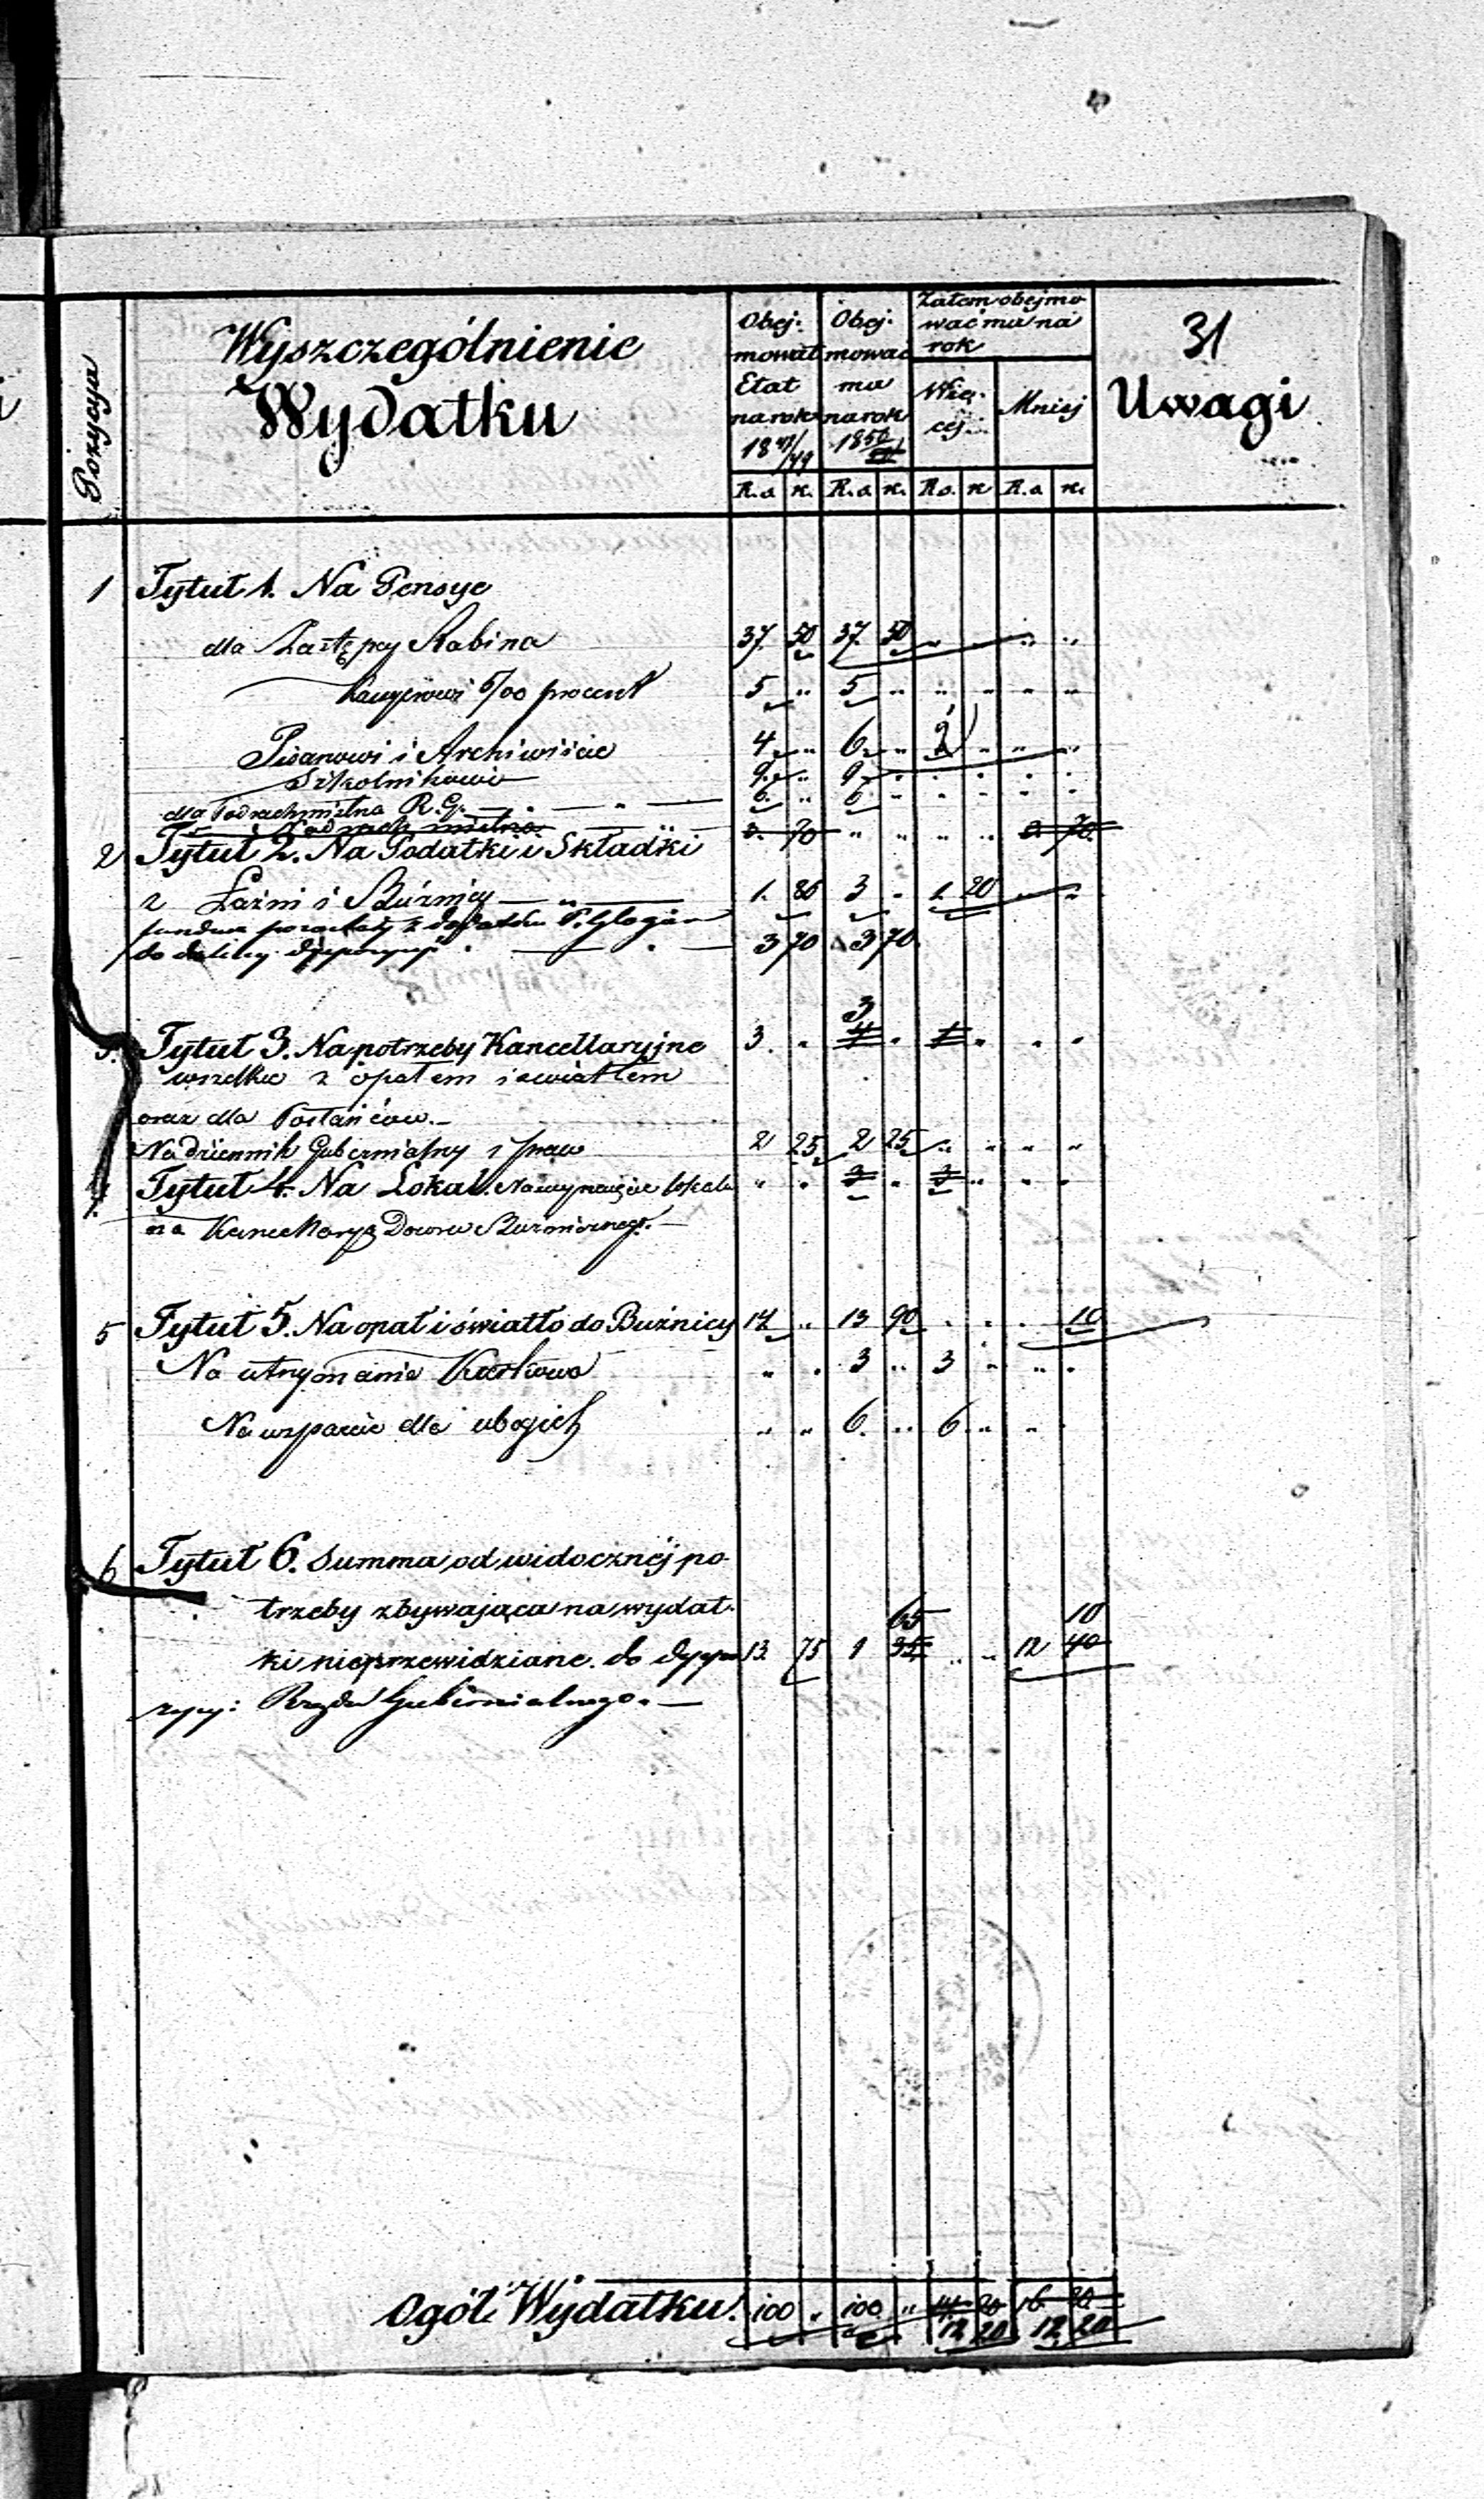 31
Pozycya
Wyszczególnienie
Wydatku
Obej-
mował
Etat
na rok
18 48/49
Obej-
mować
ma
na rok
1850
Zatem obejmo
wać ma na
rok
Wię-
cej
Mniej
Uwagi
R.s. k. R.s. k. R.s. k R.s. k.
1 Tytuł 1. Na Pensye
dla Zastępcy Rabina 37. 50 37. 50 " " " "
5/00 procent 5 " 5 " " " " "
Pisarzowi i Archiwiście 4 " 6 " 2 " " "
Szkolnikowi 9 " 9 " " " " "
dla Podrachmistrza R. G. 6. " 6 " " " " "
Podrachmistrza 2. 70 " " " " 2. 70
2 Tytuł 2. Na Podatki i Składki
z Łaźni i Bużnicy 1. 80 3 " 1. 20 " "
fundusz pozostały z
do dalszej dyspozycyi 3 70 3 70
3
3. Tytuł 3. Na potrzeby Kancellaryjne 3. " 4 " 1 " " "
wszelkie z opałem i światłem
oraz dla Posłańców.
Na dziennik Gubernialny i praw 2 25 2 25 " " " "
4. Tytuł 4. Na Lokal. Na wynajęcie lokalu " " 3 " 3 " " "
na Kancellaryą Dozoru Bużniczego.
5 Tytuł 5. Na opał i światło do Bużnicy 14 " 13 90 " " " 10
Na utrzymanie " " 3 " 3 " " "
Na wsparcie dla ubogich " " 6. " 6 " "
6 Tytuł 6. Summa od widocznéj po-
trzeby zbywająca na wydat- 65 10
ki nieprzewidziane do dyspo 13. 75 1 35 " " 12 40
zycyi: Rządu Gubernialnego.
Ogół Wydatku. 100 " 100 " 14 20 16. 20
12 20 12 20